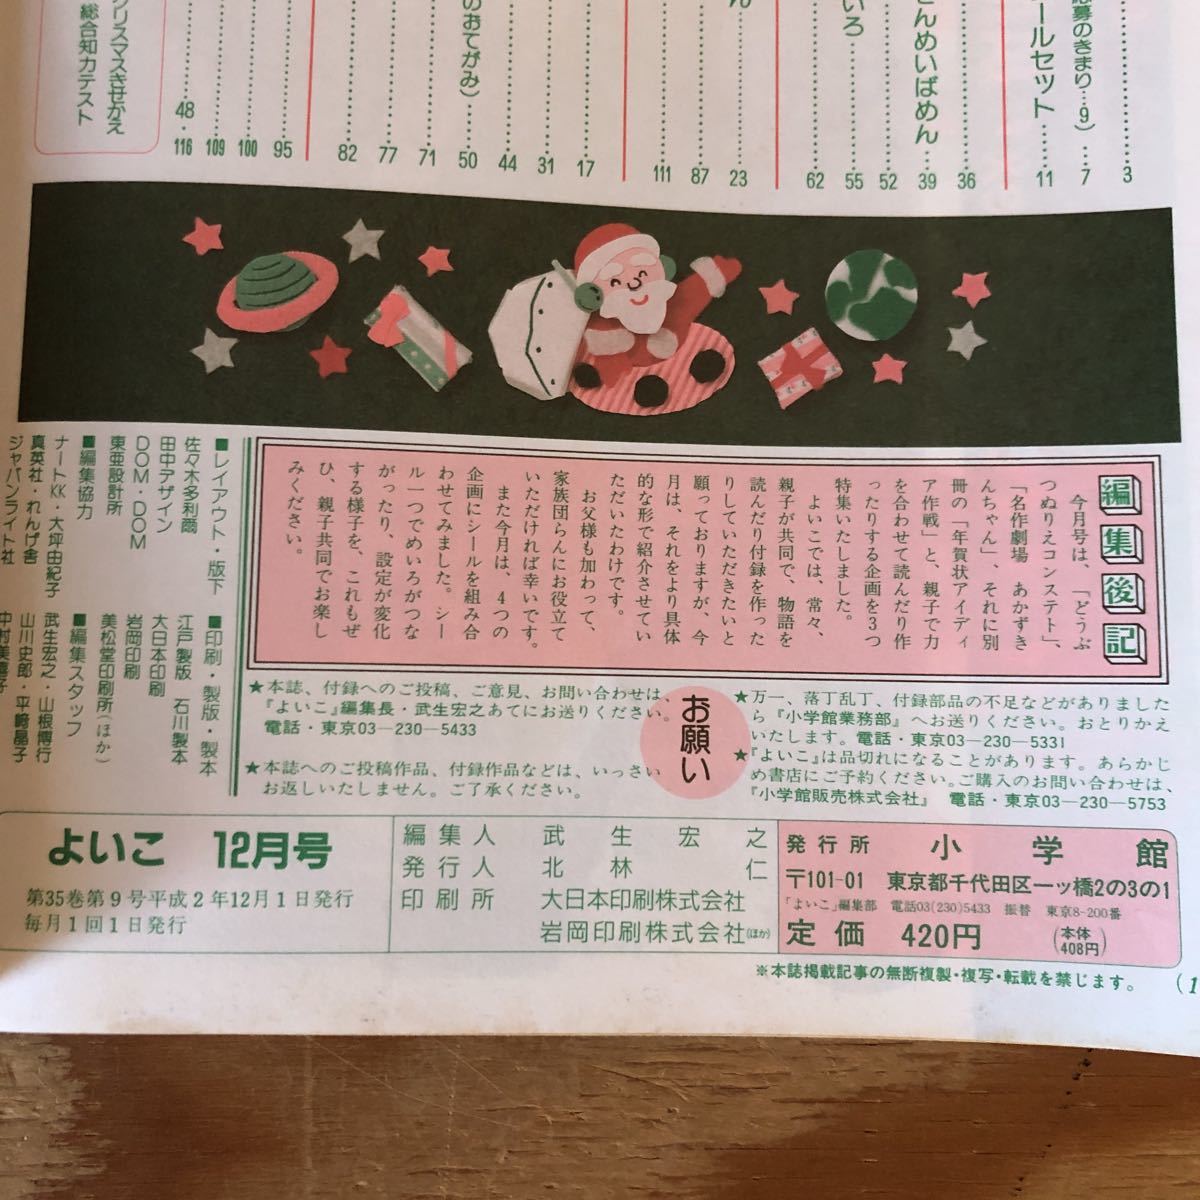 応募のきまり…9)……7
ールセット………11
…………3
…………36
さんめいばめん…39
…………52
いろ…………55
…………62
ん…………23
…………87
…………111
…………17
…………31
…………44
のおてがみ)……50
…………71
…………77
…………82
…………95
…………100
…………109
…………116
クリスマスきせかえ……48
総合知力テスト
編集後記
今月号は、「どうぶ
つぬりえコンステト」、
「名作劇場 あかずき
んちゃん」、それに別
冊の「年賀状アイディ
ア作戦」と、親子で力
を合わせて読んだり作
ったりする企画を3つ
特集いたしました。
よいこでは、常々、
親子が共同で、物語を
読んだり付録を作った
りしていただきたいと
願っておりますが、今
月は、それをより具体
的な形で紹介させてい
ただいたわけです。
お父様も加わって、
家族団らんにお役立て
いただければ幸いです。
また今月は、4つの
企画にシールを組み合
わせてみました。シー
ル一つでめいろがつな
がったり、設定が変化
する様子を、これもぜ
ひ、親子共同でお楽し
みください。
■レイアウト・版下
佐々木多利爾
田中デザイン
DOM・DOM
東亜設計所
■編集協力
ナートKK・大坪由紀子
真英社・れんげ舎
ジャパンライト社
■印刷・製版・製本
江戸製版 石川製本
大日本印刷
岩岡印刷
美松堂印刷所(ほか)
■編集スタッフ
武生宏之・山根博行
山川史郎・平崎晶子
中村美喜子
お願い
★本誌、付録へのご投稿、ご意見、お問い合わせは、
『よいこ』編集長・武生宏之あてにお送りください。
電話・東京03―230―5433
★本誌へのご投稿作品、付録作品などは、いっさい
お返しいたしません。ご了承ください。
★万一、落丁乱丁、付録部品の不足などがありました
ら『小学館業務部』へお送りください。おとりかえ
いたします。電話・東京03―230―5331
★『よいこ』は品切れになることがあります。あらかじ
め書店にご予約ください。ご購入のお問い合わせは、
『小学館販売株式会社』 電話・東京03―230―5753
よいこ 12月号
第35巻第9号平成2年12月1日発行
毎月1回1日発行
編集人 武生宏之
発行人 北林仁
印刷所 大日本印刷株式会社
岩岡印刷株式会社(ほか)
発行所 小学館
〒101-01 東京都千代田区一ッ橋2の3の1
「よいこ」編集部 電話03(230)5433 振替 東京8-200番
定価 420円(本体408円)
※本誌掲載記事の無断複製・複写・転載を禁じます。
(1